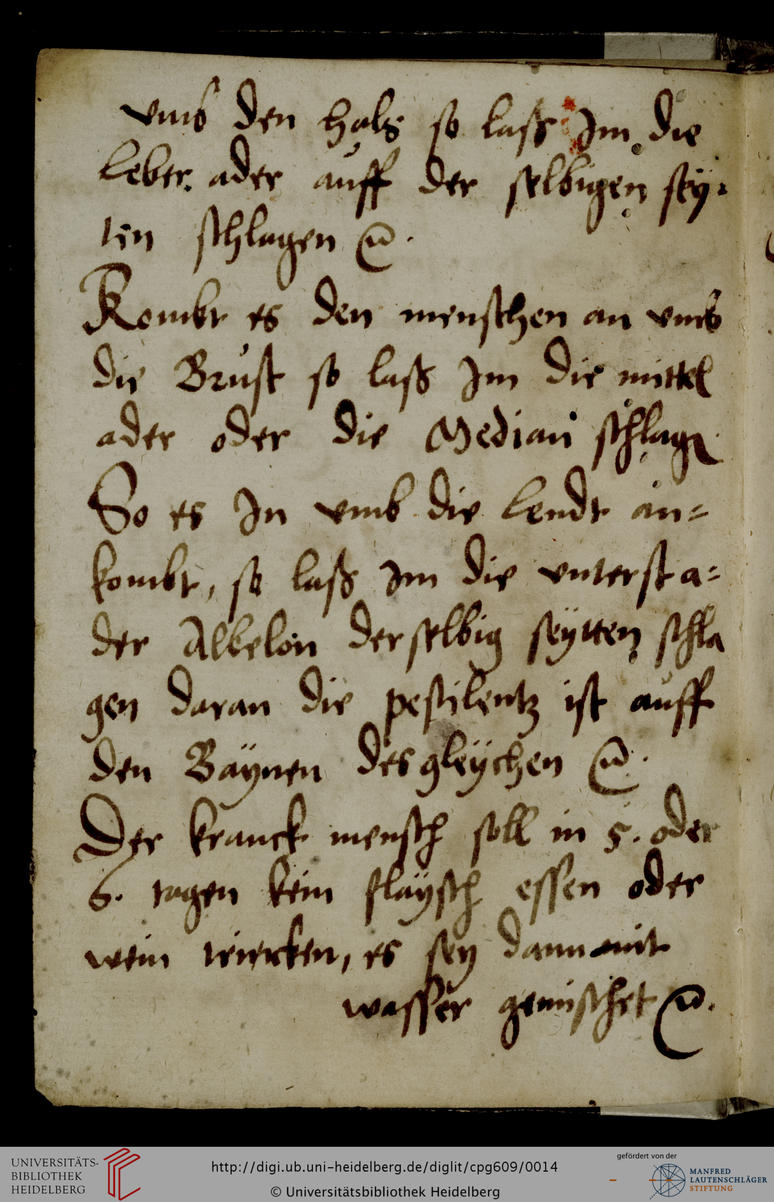 vmb den hals so laß Im die
leber ader auff der selbigen sey-
ten schlagen
Kombt es den menschen an vmb
die Brust so laß Im die mittel
ader oder die Median schlagen
So es In vmb die lendt an-
kombt, so laß Im die vnterst a-
der Albelon derselbig seytten schla
gen daran die pestilentz ist auff
den Baynen desgleychen
Der kranck mensch soll in 5. oder
6. tagen kein flaysch essen oder
wein trincken, es sey dann mit
wasser gemischet
UNIVERSITÄTS-
BIBLIOTHEK
HEIDELBERG
http://digi.ub.uni-heidelberg.de/diglit/cpg609/0014
© Universitätsbibliothek Heidelberg
gefördert von der
MANFRED
LAUTENSCHLÄGER
STIFTUNG